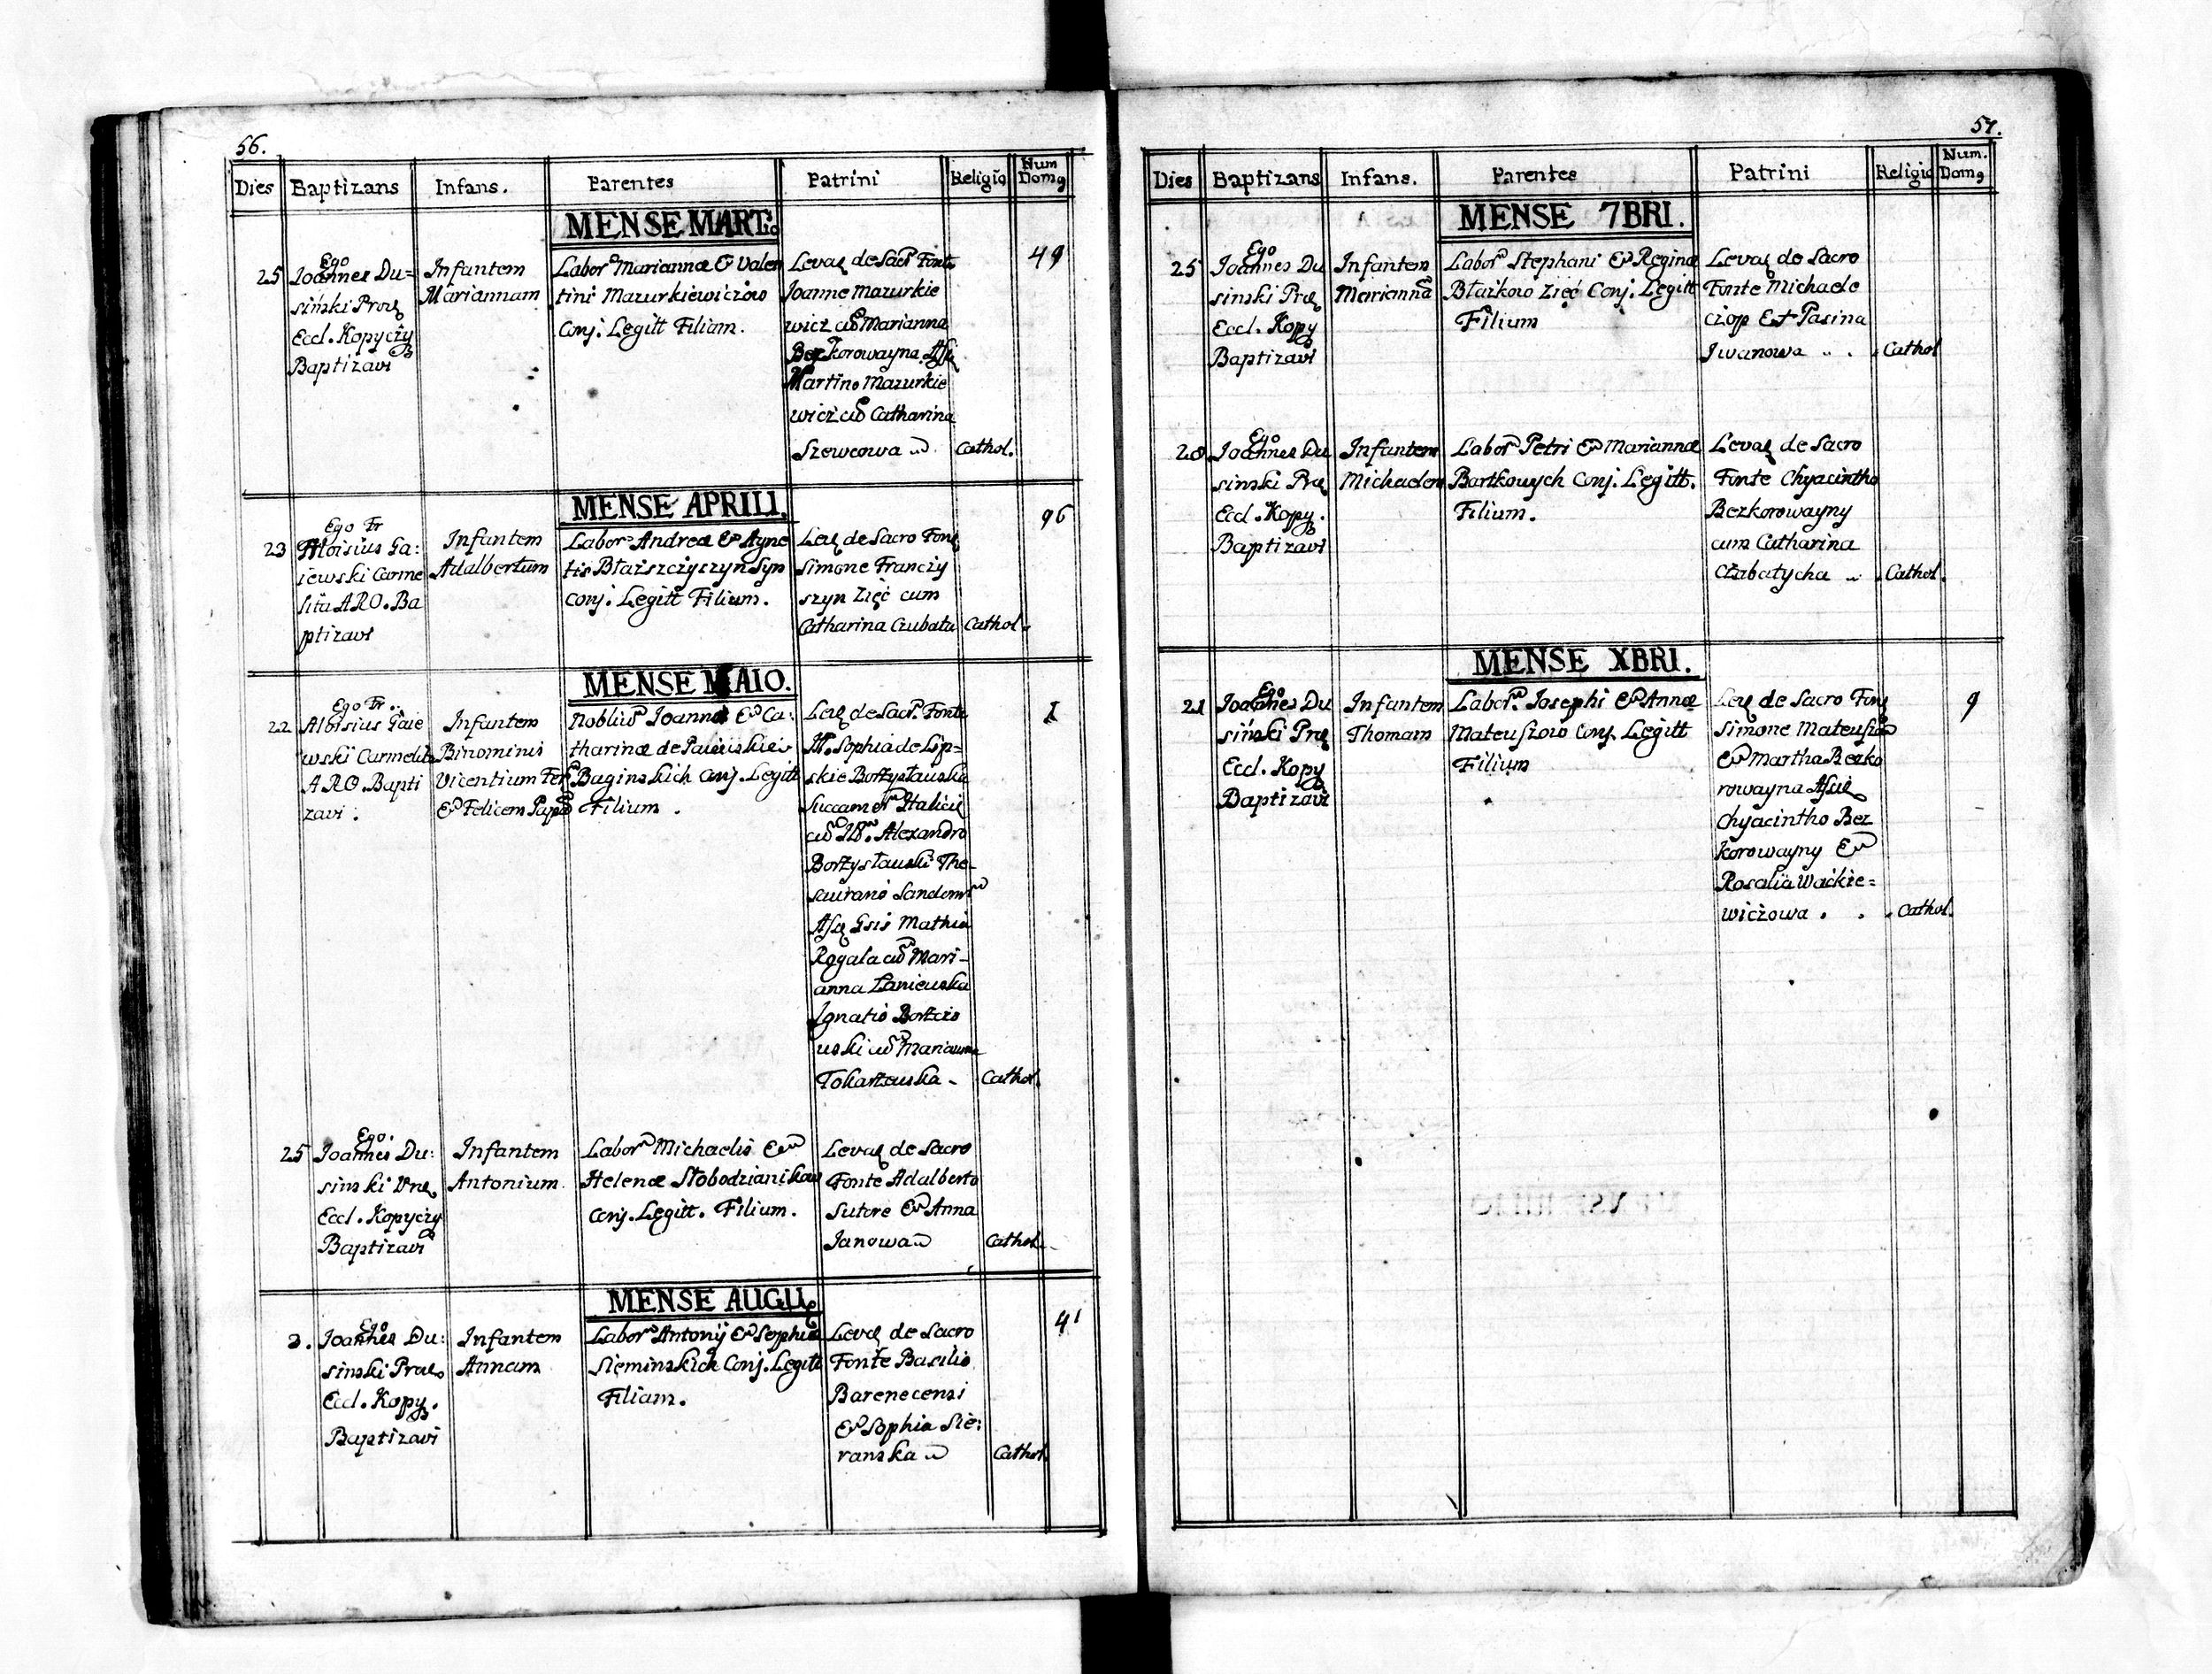 56.
Dies Baptizans Infans. Parentes Patrini Religio Num Dom9
MENSE MART:
49
25 Ego Joannes Du=
sinski Præ
Eccl. Kopyczy
Baptizavi
Infantem
Mariannam
Labor. Mariannæ & Valen
tini Mazurkiewiczow
Conj. Legitt Filiam.
Levaę de Sacr Fonte
Joanne Mazurkie
wicz cũ Marianna
Bezkorowayna
Martino Mazurkie
wicz cũ Catharina
Szewcowa
Cathol.
MENSE APRILI.
96
23 Ego Fr
Aloisius Ga:
iewski Carme
lita ARO. Ba
ptizavi
Infantem
Adalbertum
Labor. Andreæ & Agne
tis Błaiszczyczyn Syn
conj. Legitt Filium.
Leę de Sacro Fonę
Simone Franczy
szyn Zięć cum
Catharina Czubata
Cathol.
MENSE MAIO.
1
22 Ego Fr.
Aloisius Gaie
wski Carmelita
ARO. Bapti
zavi.
Infantem
Binominis
Vicentium Fer
& Felicem Papã
Noblium Joannis & Ca:
tharinæ de
Baginskich Conj. Legitt
Filium.
Leę de Sacr. Fonte
M. Sophia de Lip=
skie Borzysławska
Succamer Halicię
cũ M. Alexandro
Borzysławski The-
saurario Sandomi
Asę Gsis Mathia
Rogala cũ Mari-
anna Łaniewska
Ignatio
uski cũ Marianna
Tokarzewska -
Cathol.
25 Ego.
Joannes Du:
sinski Præ
Eccl. Kopyczy
Baptizavi
Infantem
Antonium.
Labor. Michaelis &
Helenæ Słobodzianikow
Conj. Legitt. Filium.
Levaę de Sacro
Fonte Adalberto
Sutore & Anna
Janowa
Cathol.
MENSE AUGU
41
3. Ego
Joannes Du:
sinski Præ
Eccl. Kopy.
Baptizavi
Infantem
Annam
Labor. Antonij & Sophiæ
Sieminskich Conj. Legitt
Filiam.
Levaę de Sacro
Fonte Basilio
Barenecensi
& Sophia Sie:
ranska
Cathol.
57.
Dies Baptizans Infans. Parentes Patrini Religio Num. Dom9
MENSE 7BRI.
25 Ego
Joannes Du
sinski Præ
Eccl. Kopy
Baptizavi
Infantem
Mariannã
Labor. Stephani & Reginæ
Błazkow Zięć Conj. Legitt
Filium
Levaę de Sacro
Fonte Michaele
Czop Et Parina
Iwanowa . .
Cathol
28 Ego
Joannes Du
sinski Præ
Eccl. Kopy.
Baptizavi
Infantem
Michaelem
Labor. Petri & Mariannæ
Bartkowych Conj. Legitt.
Filium.
Levaę de Sacro
Fonte Chyacintho
Bezkorowayny
cum Catharina
Czabatycha
Cathol.
MENSE XBRI.
9
21 Ego
Joannes Du
sinski Præ
Eccl. Kopy
Baptizavi
Infantem
Thomam
Labor. Josephi & Annæ
Mateuszow Conj. Legitt
Filium
Leę de Sacro Fonę
Simone Mateuszow
& Martha Bezko
rowayna
Chyacintho Bez
korowayny &
Rosalia Wackie=
wiczowa . .
Cathol.